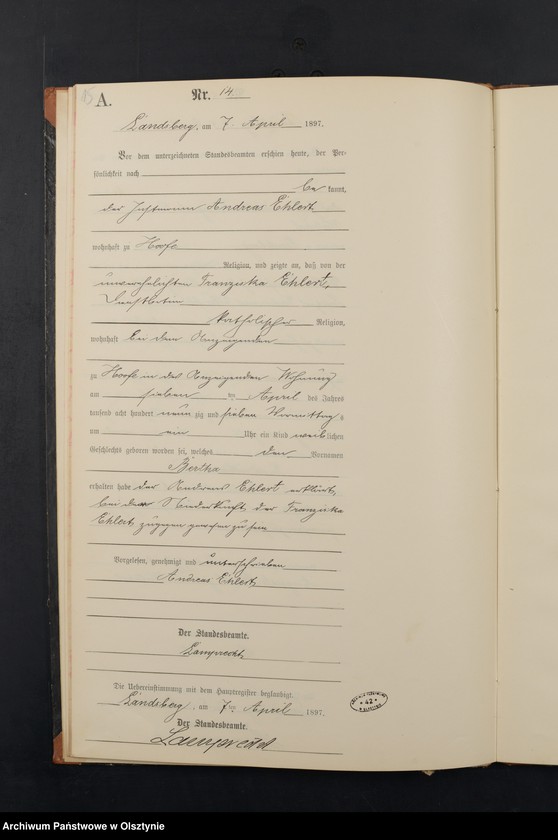 A.
Nr. 14
Landsberg, am 7. April 1897.
Vor dem unterzeichneten Standesbeamten erschien heute, der Per-
sönlichkeit nach
be kannt,
der Instmann Andreas Ehlert
wohnhaft zu Hoofe
Religion, und zeigte an, daß von der
unverehelichten Franziska Ehlert,
katholischer Religion,
wohnhaft bei dem Anzeigenden
zu Hoofe in des Anzeigenden Wohnung
am sieben ten April des Jahres
tausend acht hundert neun zig und sieben Vormittags
um ein Uhr ein Kind weiblichen
Geschlechts geboren worden sei, welches den Vornamen
Bertha
erhalten habe der Andreas Ehlert erklärt,
bei der Niederkunft der Franziska
Ehlert zugegen gewesen zu sein
Vorgelesen, genehmigt und unterschrieben
Andreas Ehlert
Der Standesbeamte.
Lamprecht
Die Uebereinstimmung mit dem Hauptregister beglaubigt.
Landsberg, am 7ten April 1897.
Der Standesbeamte.
Lamprecht
42
Archiwum Państwowe w Olsztynie